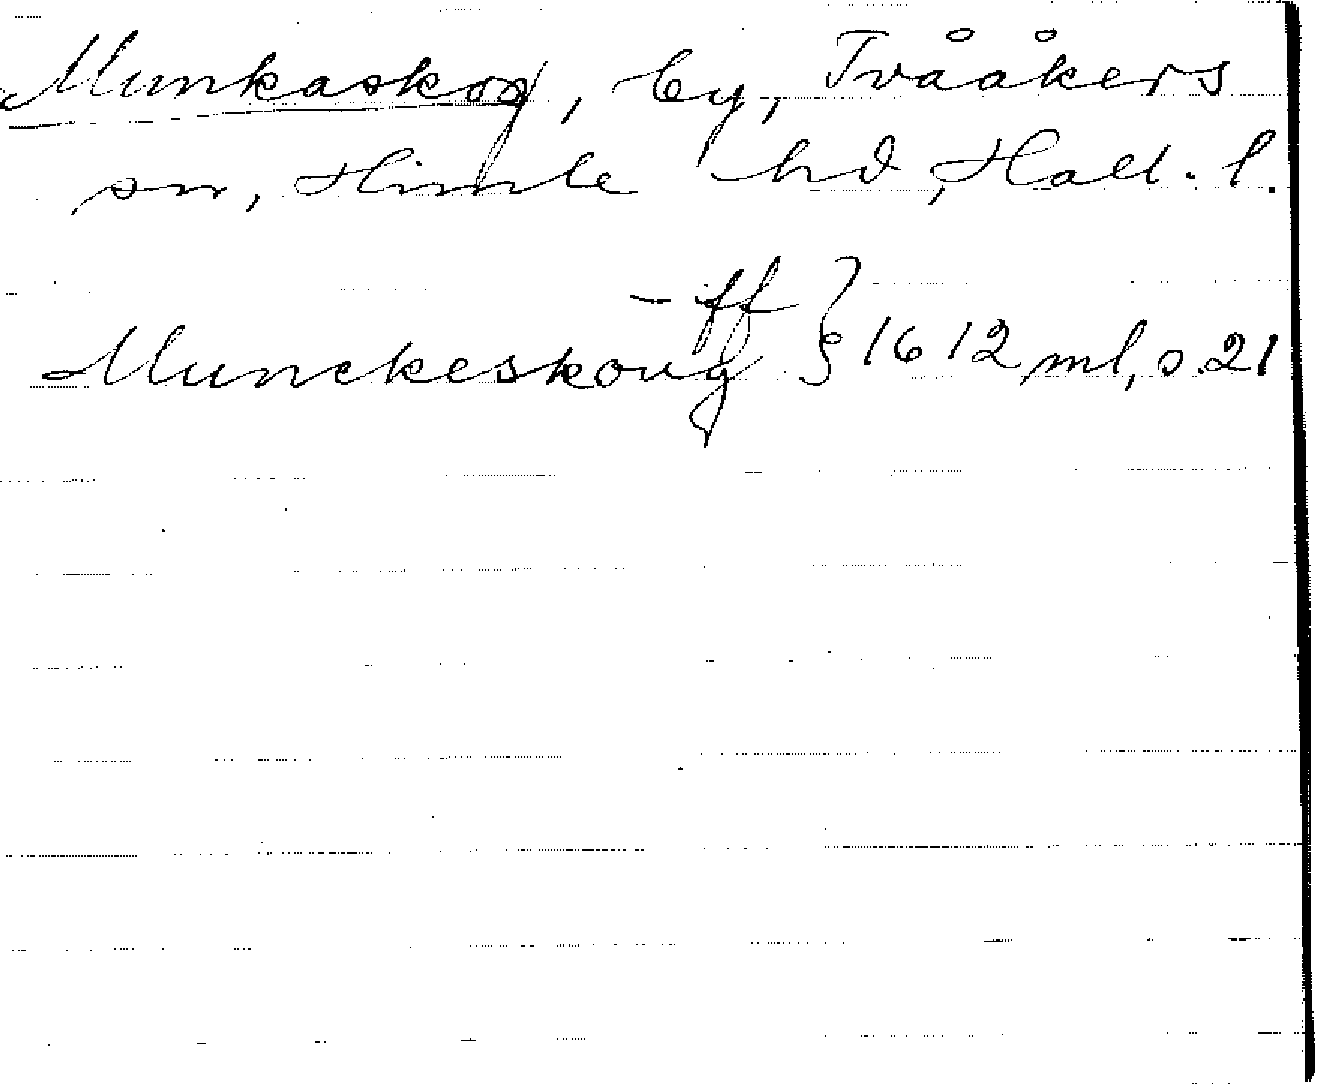 Munkaskog, by, Tvååkers
sn, Himle hd, Hall. l.
– ff }
Munckeskoug } 1612 ml, s. 21